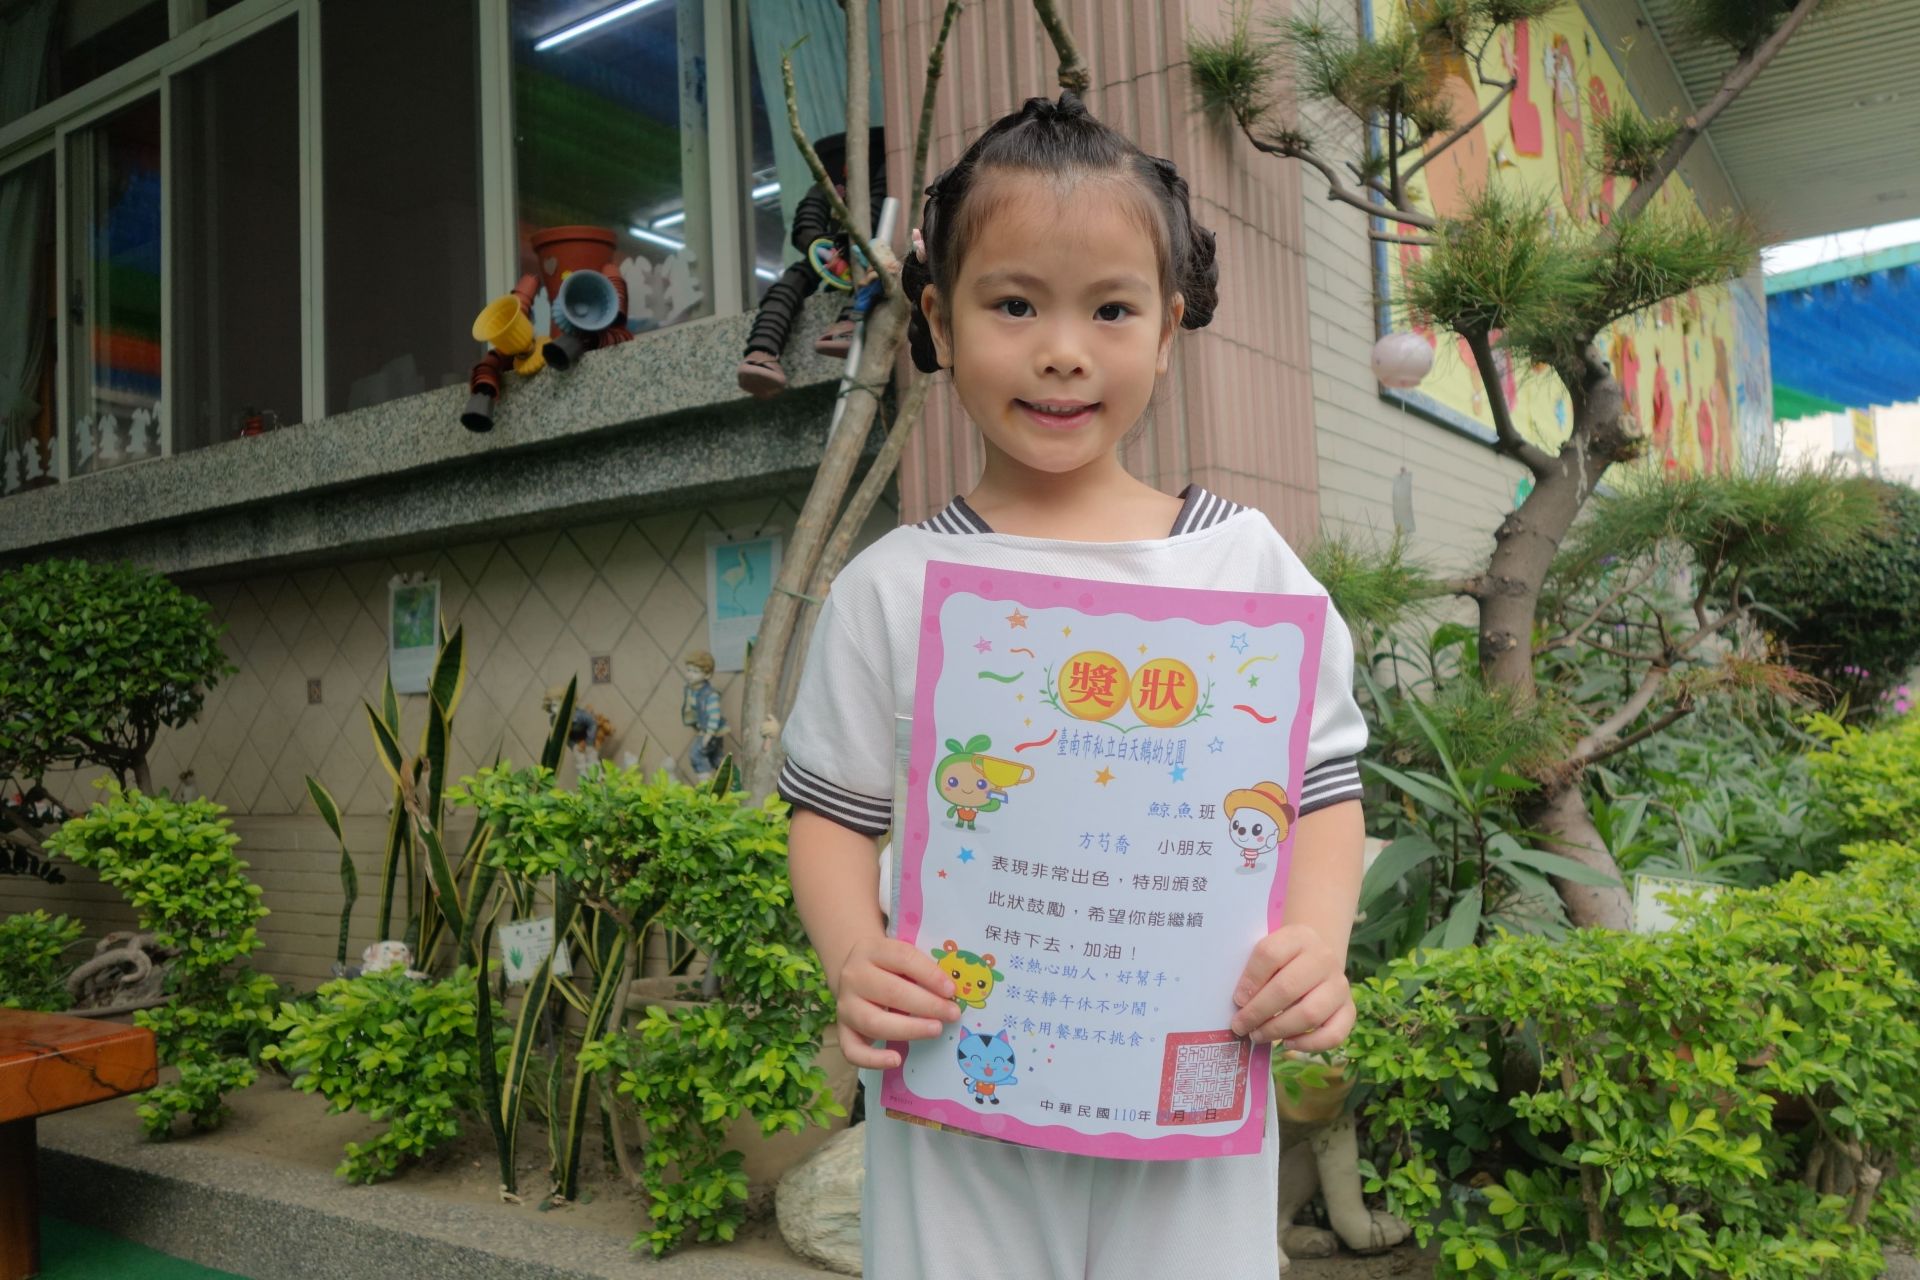 獎狀
臺南市私立白天鵝幼兒園
鯨魚班
方芍喬 小朋友
表現非常出色，特別頒發
此狀鼓勵，希望你能繼續
保持下去，加油！
※熱心助人，好幫手。
※安靜午休不吵鬧。
※食用餐點不挑食。
中華民國110年 月 日